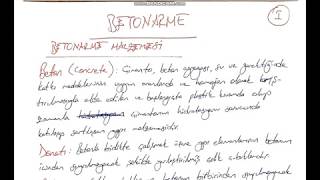 BETONARME
I
BETONARME MALZEMESİ
Beton (Concrete): Çimento, beton agregası, su ve gerektiğinde
katkı maddelerinin uygun oranlarda ve homojen olarak karış-
tırılmasıyla elde edilen ve başlangıçta plastik kıvamda olup
zamanla çimentonun hidratasyonu sonucunda
katılaşıp sertleşen yapı malzemesidir.
Donatı: Betonla birlikte çalışmak üzere yapı elemanlarının betonun
içinden sıyrılmayacak şekilde yerleştirilmiş çelik çubuklardır.
betonun birbirinden sıyrılmayarak